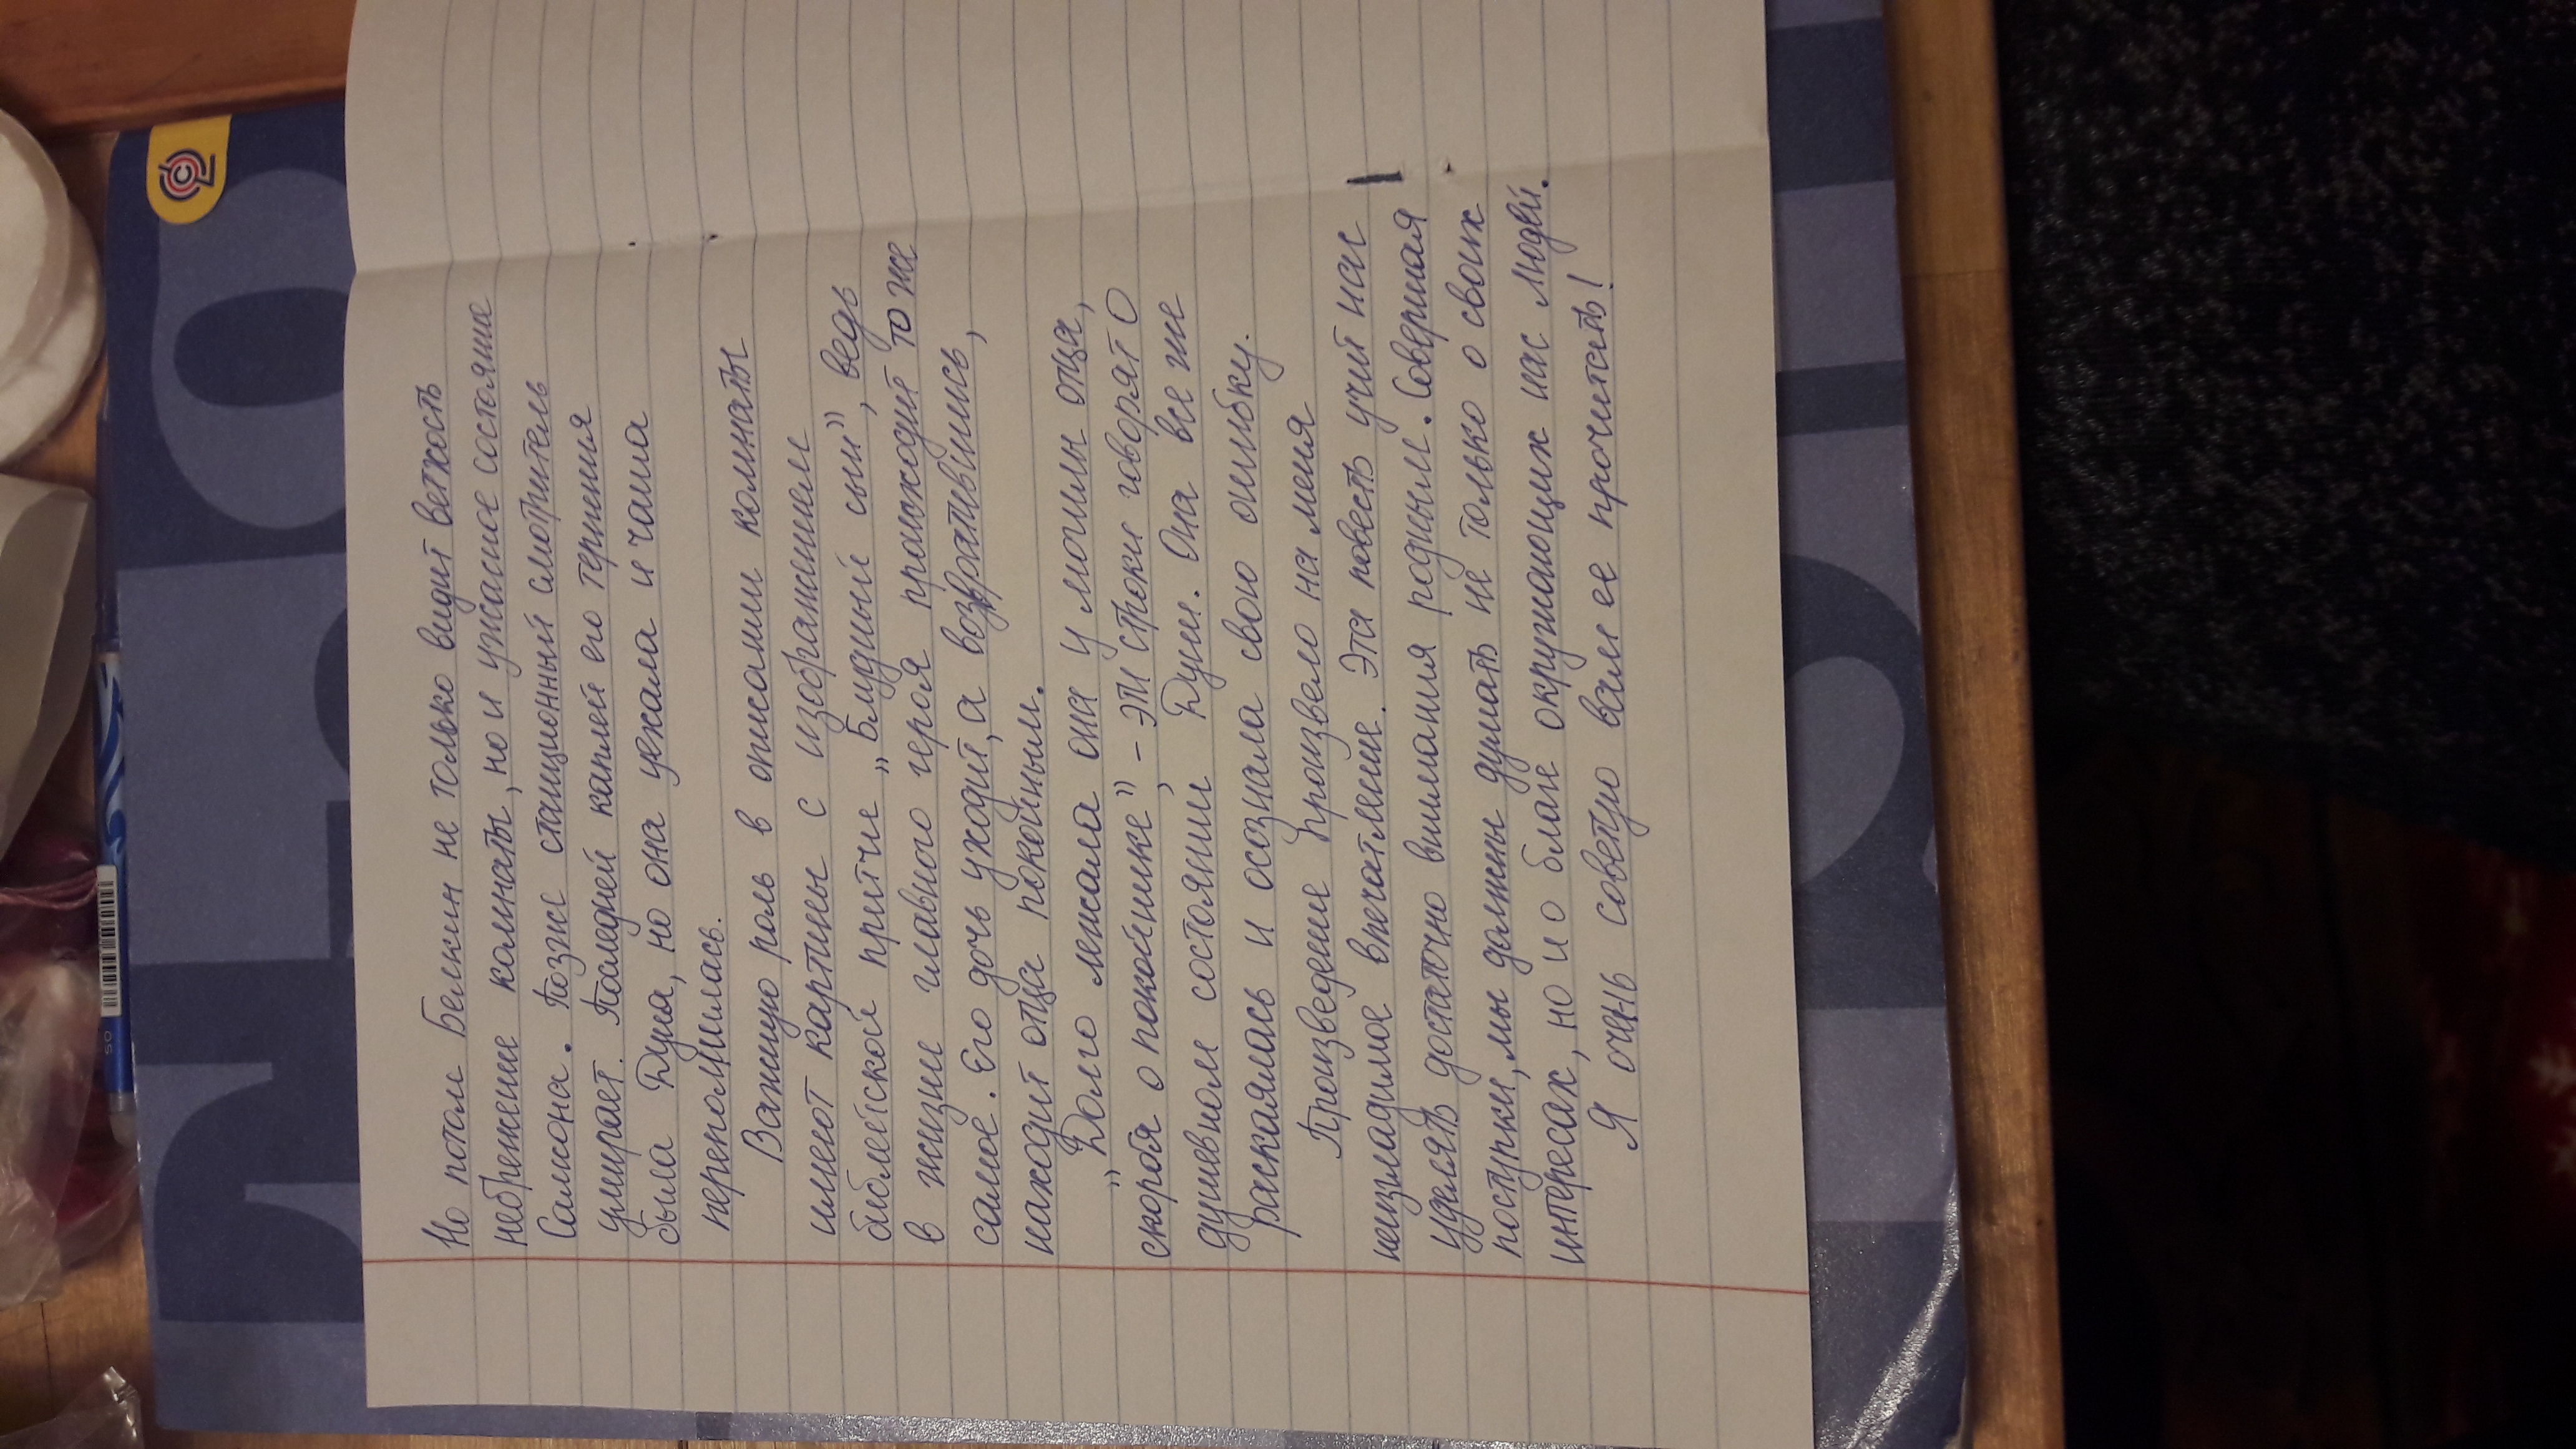 Но потом Белкин не только видит ветхость
небрежние комнаты, но и ужасное состояние
Самсона. Позже станционный смотритель
умирает. Последней каплей его терпения
была Дуня, но она уехала и чаша
переполнилась.
Важную роль в описании комнаты
имеют картины с изображением
библейской притче „Блудный сын", ведь
в жизни главного героя происходит то же
самое. Его дочь уходит, а возвратившись,
находит отца покойным.
„Долго лежала она у могилы отца,
скорбя о покойнике" - эти строки говорят о
душевном состоянии Дуни. Она все же
раскаялась и осознала свою ошибку.
Произведение произвело на меня
неизгладимое впечатление. Эта повесть учит нас
уделять достаточно внимания родным. Совершая
поступки, мы должны думать не только о своих
интересах, но и о благе окружающих нас людей.
Я очень советую вам ее прочитать!